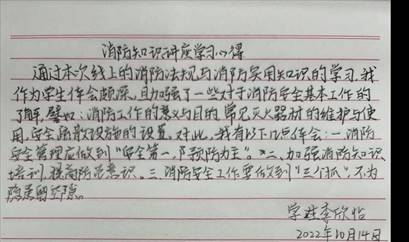 消防知识讲座学习心得
通过本次线上的消防法规与消防实用知识的学习,我
作为学生体会颇深,且加强了一些对于消防安全基本工作的
了解,譬如:消防工作的意义与目的,常见灭火器材的维护与使
用,安全疏散设施的设置。对此,我有以下几点体会:一.消防
安全管理应做到“安全第一,预防为主”。二、加强消防知识
培训,提高防范意识。三.消防安全工作要做到“三个抓”,不为
隐患留空隙。
学姓李欣怡
2022年10月14日